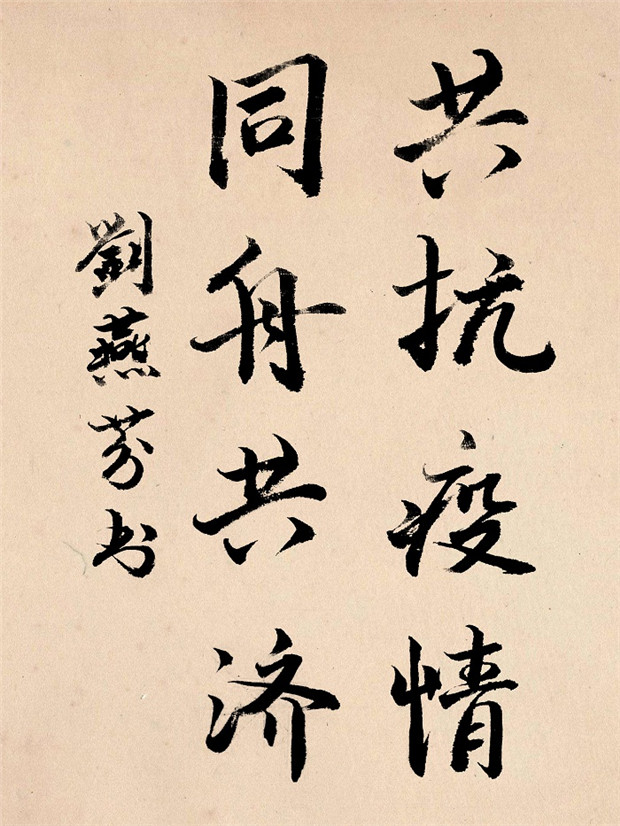 共抗疫情
同舟共济
劉燕芬书